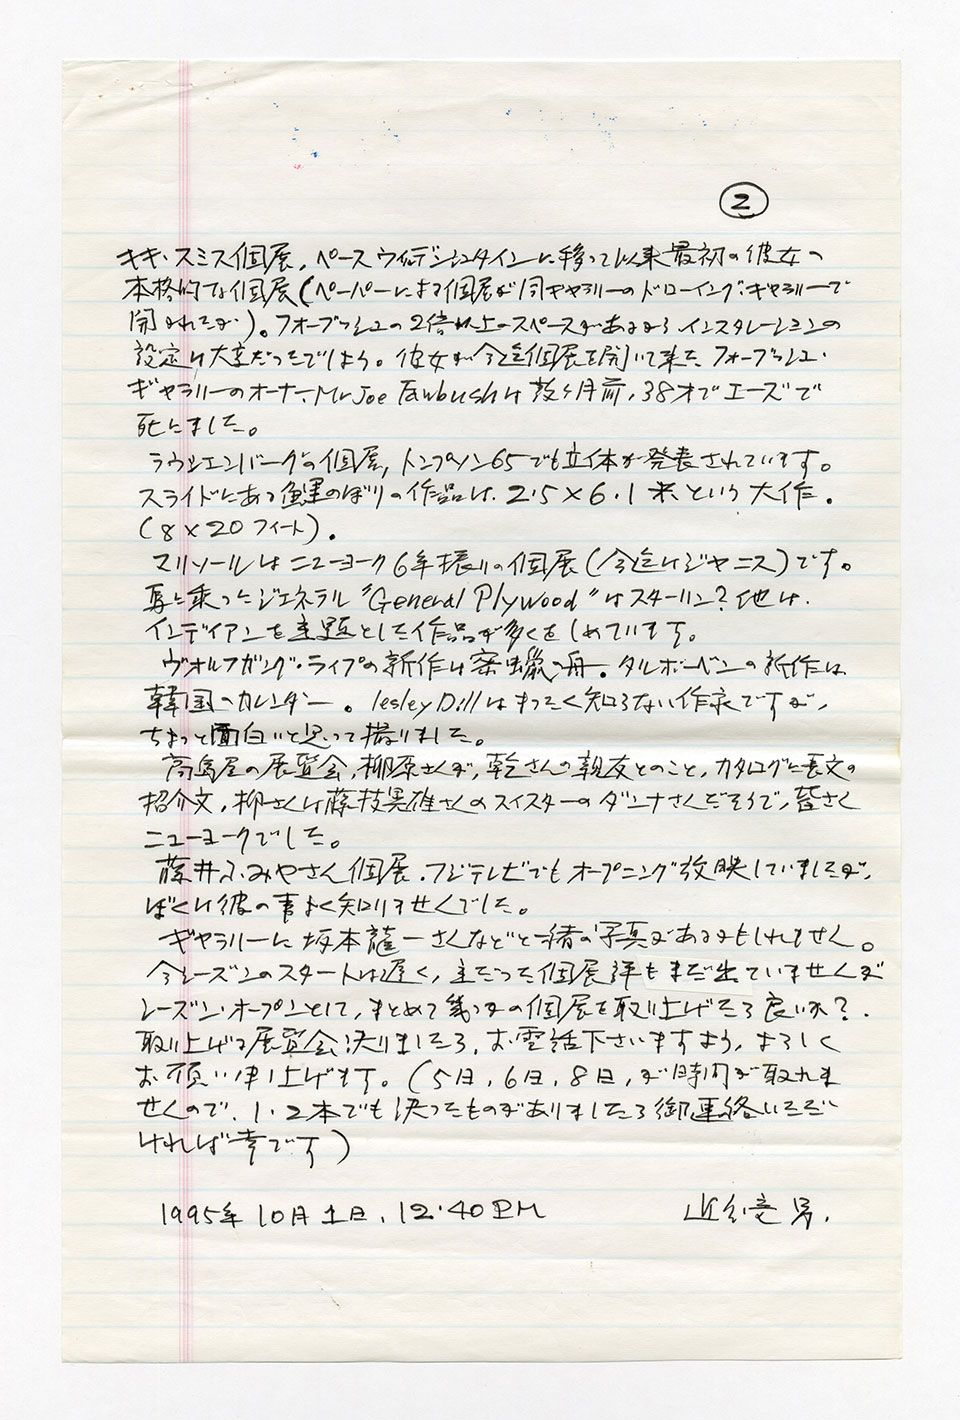 2
キキ・スミス個展、ペースウィルデンシュタインに移って以来最初の彼女の
本格的な個展(ペーパーによる個展が同ギャラリーのドローイング・ギャラリーで
開かれたが)。フォーブッシュの2倍以上のスペースがあるからインスタレーションの
設定は大変だったでしょう。彼女が今迄個展を開いて来たフォーブッシュ・
ギャラリーのオーナー、Mr Joe Fawbushは数ヶ月前、38才でエーズで
死にました。
ラウシェンバーグの個展、トンプソン65でも立体が発表されています。
スライドにある鯉のぼりの作品は、2.5×6.1米という大作。
(8×20フィート)。
マリソールはニューヨーク6年振りの個展(今迄はジャニス)です。
馬に乗ったジェネラル"General Plywood"はスターリン?他は、
インディアンを主題とした作品が多くをしめています。
ヴォルフガング・ライプの新作は蜜蠟の舟。ダルボーベンの新作は
韓国のカレンダー。lesley Dillはまったく知らない作家ですが、
ちょっと面白いと思って撮りました。
高島屋の展覧会、柳原さんが、乾さんの親友とのこと、カタログに長文の
紹介文、柳さんは藤枝晃雄さんのスイスターのダンナさんだそうで、皆さん
ニューヨークでした。
藤井ふみやさん個展、フジテレビでもオープニング放映していましたが、
ぼくは彼の事よく知りませんでした。
ギャラリーに坂本龍一さんなどと一緒の写真があるかもしれません。
今シーズンのスタートは遅く、主だった個展評もまだ出ていませんが
シーズン・オープンとして、まとめて幾つかの個展を取り上げたら良いか?
取り上げる展覧会決りましたら、お電話下さいますよう、よろしく
お願い申し上げます。(5日、6日、8日、が時間が取れま
せんので、1・2本でも決ったものがありましたら御連絡いただ
ければ幸です)
1995年10月1日、12:40PM
近藤竜男、